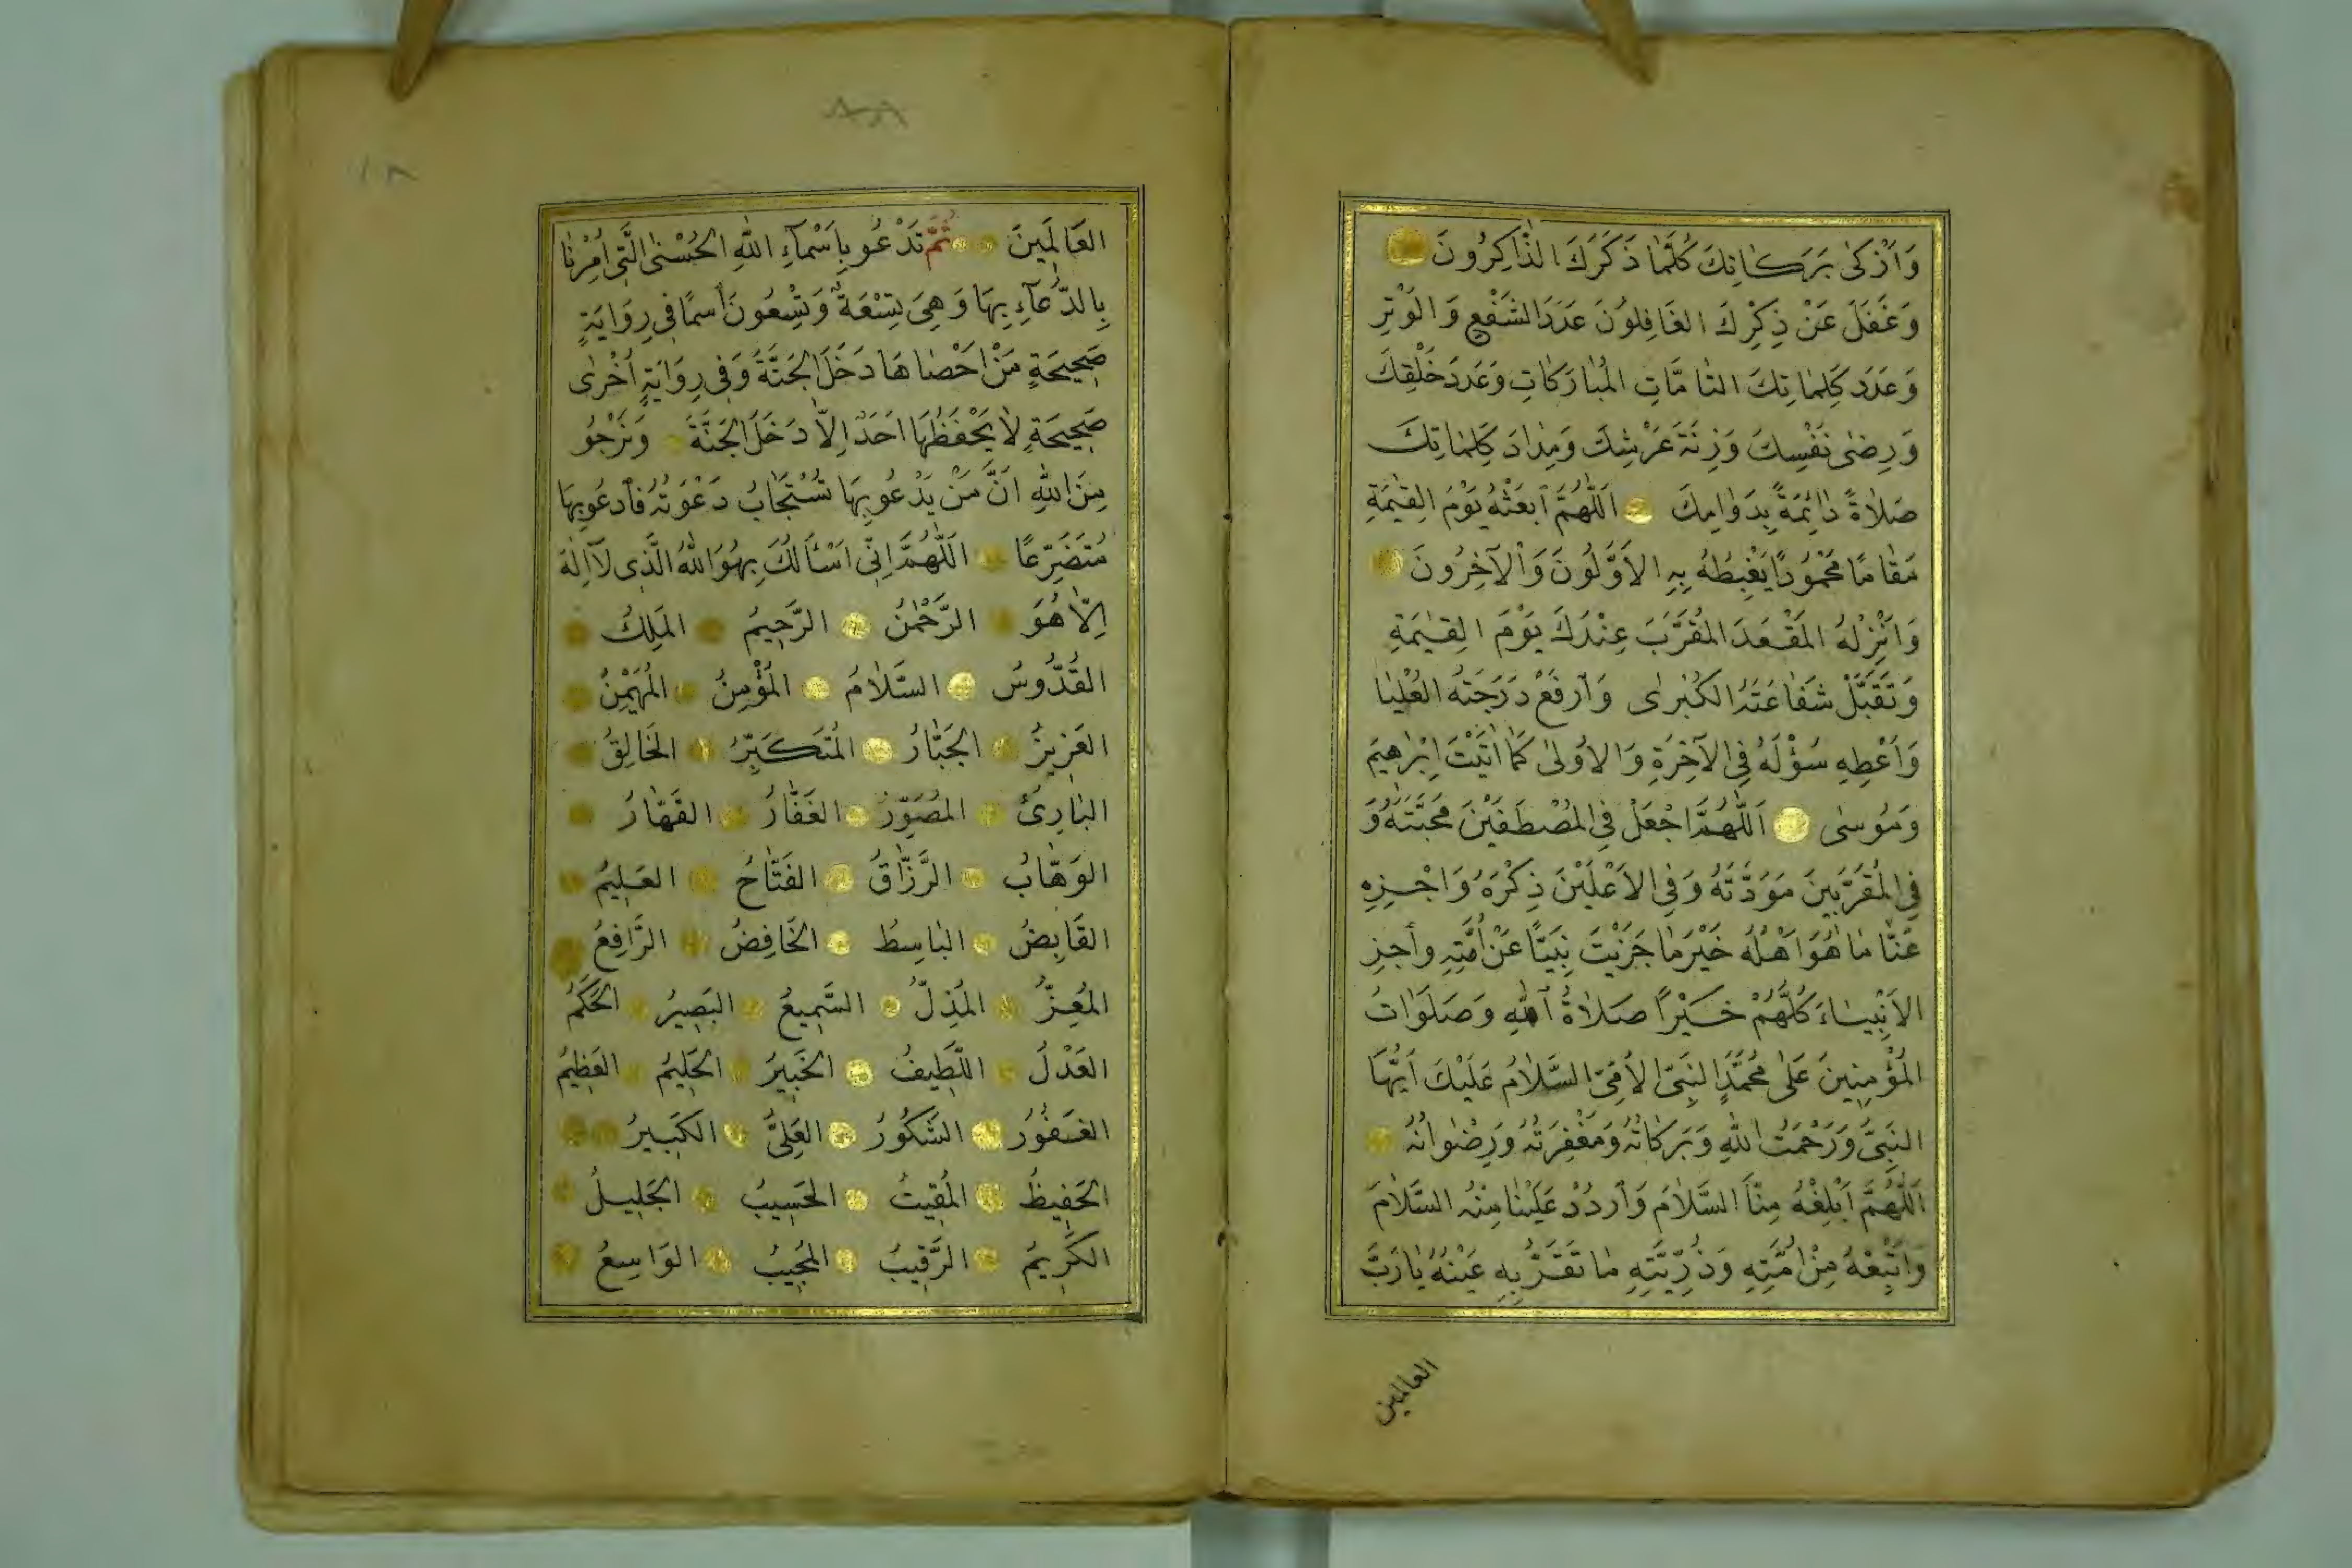 وَاَزْكٰى بَرَكَاتِكَ كُلَّمٰا ذَكَرَكَ الذّٰاكِرُونَ
وَغَفَلَ عَنْ ذِكْرِكَ الغَافِلوُنَ عَدَدَ الشَّفْعِ وَالوَتْرِ
وَعَدَدِ كَلِمٰاتِكَ التّٰامَّاتِ المُبٰارَكَاتِ وَعَدَدِ خَلْقِكَ
وَرِضٰى نَفْسِكَ وَزِنَةَ عَرْشِكَ وَمِدٰادَ كَلِمٰاتِكَ
صَلاٰةً دٰائِمَةً بِدَوٰامِكَ اَللّٰهُمَّ ٱبعَثْهُ يَوْمَ القِيٰمَةِ
مَقٰامًا مَحْمُودًا يَغْبِطُهُ بِهِ الاَوَّلوُنَ وَاْلآخِرُونَ
وَانْزِلْهُ المَقْعَدَ المُقَرَّبَ عِنْدَكَ يَوْمَ القِيٰمَةِ
وَتَقَبَّلْ شَفَاعَتَهُ الكُبْرٰى وَٱرفَعْ دَرَجَتَهُ العُلْيٰا
وَاَعْطِهِ سُؤْلَهُ فِي الآخِرَةِ وَالاوُلىٰ كَمٰا اٰتَيْتَ اِبْرٰهِيمَ
وَمُوسٰى اَللّٰهُمَّ اجْعَلْ فِي المُصْطَفَيْنَ مَحَبَّتَهُ وَ
فِي المُقَرَّبِينَ مَوَدَّتَهُ وَفِي الاَعْلَيْنَ ذِكْرَهُ وَاجْزِهِ
عَنّٰا مٰا هُوَ اَهْلُهُ خَيْرَ مٰا جَزَيْتَ نَبِيًّا عَنْ اُمَّتِهِ وأجزِ
الاَنْبِيٰاءَ كُلَّهُمْ خَيْرًا صَلاٰةُ ٱللّٰهِ وَصَلَوَاتُ
المُؤْمِنِينَ عَلىٰ مُحَمَّدٍ النَّبِيِّ الاُمِّيِّ السَّلاٰمُ عَلَيْكَ اَيُّهَا
النَّبِيُّ وَرَحْمَتُ اللّٰهِ وَبَرَكَاتُهُ وَمَغْفِرَتُهُ وَرِضْوٰانُهُ
اَللّٰهُمَّ اَبْلِغْهُ مِنَّا السَّلاٰمَ وَٱردُدْ عَلَيْنٰا مِنْهُ السَّلاٰمَ
وَاتْبِعْهُ مِنْ اُمَّتِهِ وَذُرِّيَّتِهِ مٰا تَقَرُّ بِهِ عَيْنُهُ يٰا رَبَّ
العالمين
٨٨
١٨
العَالَمِينَ ثُمَّ تَدْعُو بِاَسْمآءِ اللّٰهِ الحُسْنٰى الَّتِى اُمِرْنٰا
بِالدُّعآءِ بِهَا وَهِيَ تِسْعَةٌ وَتِسْعُونَ اسمًا فِي رِوَايَةٍ
صَحِيحَةٍ مَنْ اَحْصٰاهَا دَخَلَ الجَنَّةَ وَفِي رِوَايَةٍ اُخْرٰى
صَحِيحَةٍ لاٰ يَحْفَظُهَا اَحَدٌ اِلاّٰ دَخَلَ الجَنَّةَ وَنَرْجُو
مِنَ اللّٰهِ اَنَّ مَنْ يَدْعُو بِهَا تُسْتَجَابُ دَعْوَتُهُ فَٱدعُو بِهَا
مُتَضَرِّعًا اَللّٰهُمَّ اِنِّي اَسْئَالُكَ بِهُوَ اللّٰهُ الَّذِى لآ اِلٰهَ
اِلاّٰ هُوَ الرَّحْمٰنُ الرَّحِيمُ المَلِكُ
القُدُّوسُ السَّلاٰمُ المُؤْمِنُ المُهَيْمِنُ
العَزِيزُ الجَبّٰارُ المُتَكَبِّرُ الخَالِقُ
البٰارِئُ المُصَوِّرُ الغَفّٰارُ القَهّٰارُ
الوَهّٰابُ الرَّزّٰاقُ الفَتّٰاحُ العَلِيمُ
القَابِضُ البٰاسِطُ الخَافِضُ الرَّافِعُ
المُعِزُّ المُذِلُّ السَّمِيعُ البَصِيرُ الحَكَمُ
العَدْلُ اللَّطِيفُ الخَبِيرُ الحَلِيمُ العَظِيمُ
الغَفُورُ الشَّكُورُ العَلِيُّ الكَبِيرُ
الحَفِيظُ المُقِيتُ الحَسِيبُ الجَلِيلُ
الكَرِيمُ الرَّقِيبُ المُجِيبُ الوَاسِعُ